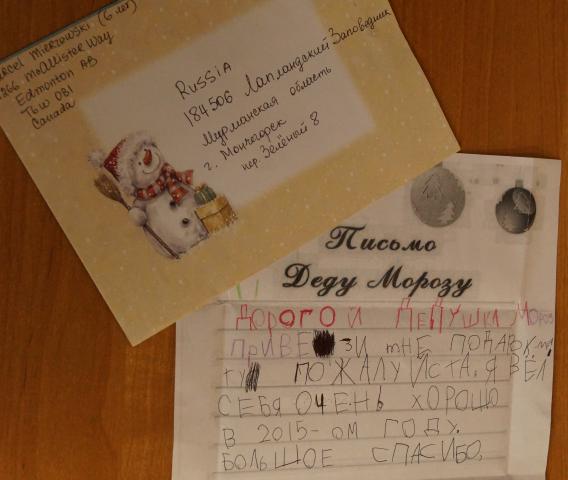 Mierzowski (6 лет)
McAllister Way
Edmonton AB
T6W 0B1
Canada
RUSSIA
184506 Лапландский Заповедник
Мурманская область
г. Мончегорск
пер. Зелёный 8
Письмо
Деду Морозу
ДОРОГОЙ ДЕДУШКА МОРОЗ
ПРИВЕ ЗИ МНЕ ПОДАРК
ПОЖАЛУЙСТА. Я ВЁЛ
СЕБЯ ОЧЕНЬ ХОРОШО
В 2015-ОМ ГОДУ.
БОЛЬШОЕ СПАСИБО.